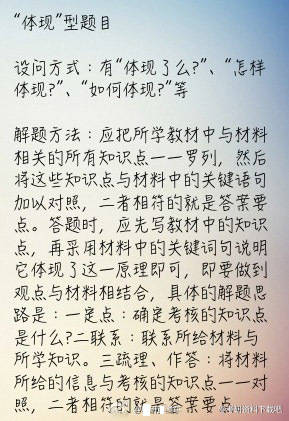 “体现”型题目
设问方式：有“体现了么?”、“怎样
体现?”、“如何体现?”等
解题方法：应把所学教材中与材料
相关的所有知识点一一罗列，然后
将这些知识点与材料中的关键语句
加以对照，二者相符的就是答案要
点。答题时，应先写教材中的知识
点，再采用材料中的关键词句说明
它体现了这一原理即可，即要做到
观点与材料相结合，具体的解题思
路是：一定点：确定考核的知识点
是什么?二联系：联系所给材料与
所学知识。三疏理、作答：将材料
所给的信息与考核的知识点一一对
照，二者相符的就是答案要点